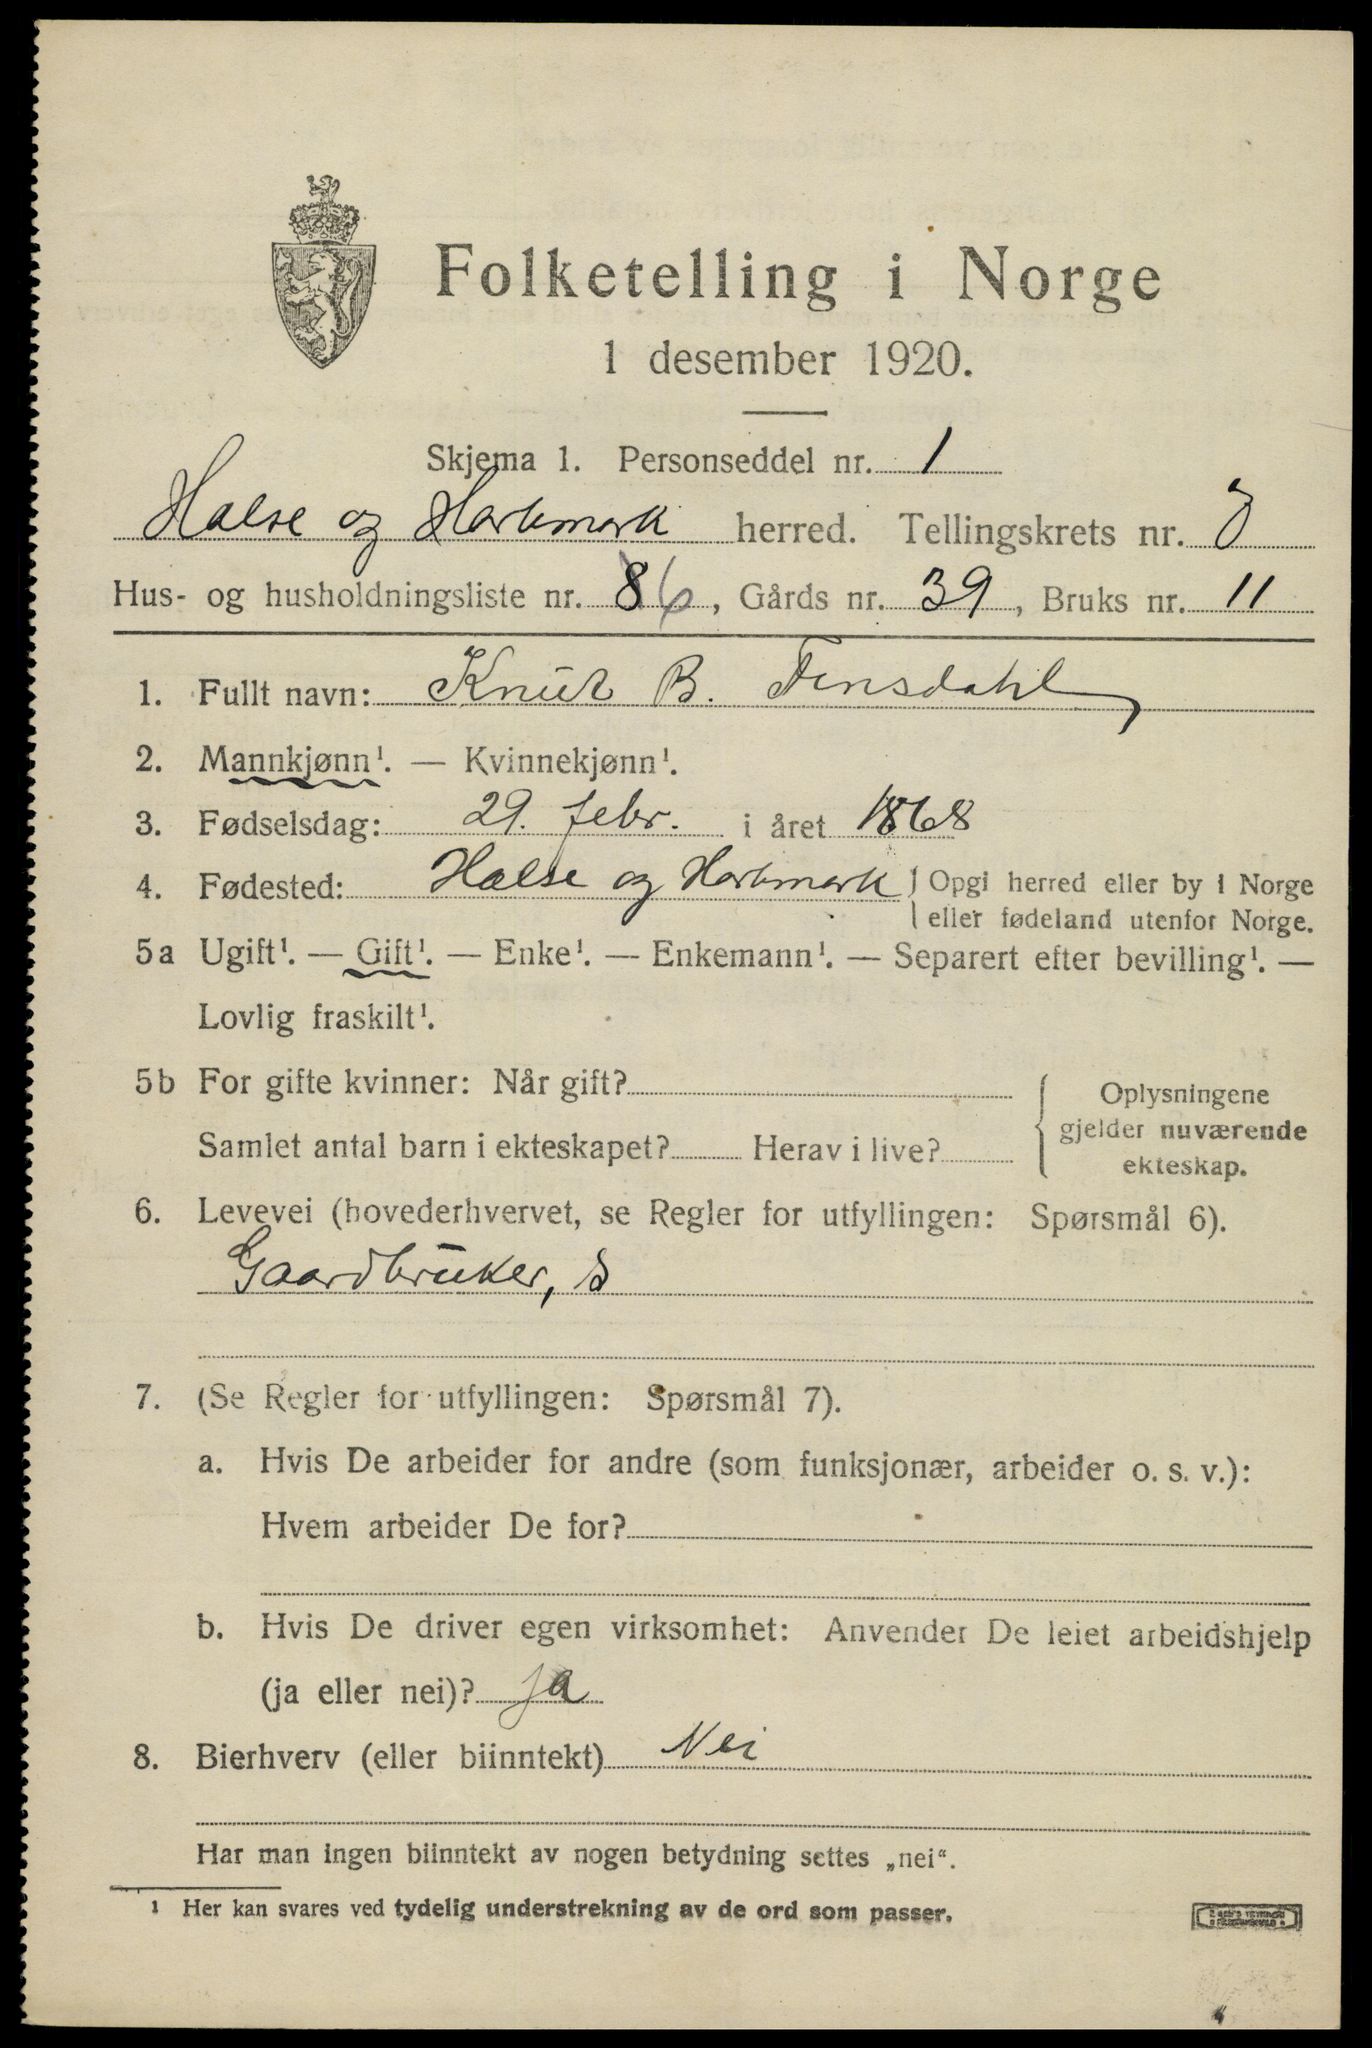 Folketelling i Norge
1 desember 1920.
Skjema 1. Personseddel nr. 1
Halse og Harkmark herred. Tellingskrets nr. 8
Hus- og husholdningsliste nr. 86, Gårds nr. 39, Bruks nr. 11
1. Fullt navn: Knut B. Finsdahl
2. Mannkjønn¹. — Kvinnekjønn¹.
3. Fødselsdag: 29. febr. i året 1868
4. Fødested: Halse og Harkmark { Opgi herred eller by i Norge
eller fødeland utenfor Norge.
5a Ugift¹. — Gift¹. — Enke¹. — Enkemann¹. — Separert efter bevilling¹. —
Lovlig fraskilt¹.
5b For gifte kvinner: Når gift?
Samlet antal barn i ekteskapet? Herav i live?
{ Oplysningene
gjelder nuværende
ekteskap.
6. Levevei (hovederhvervet, se Regler for utfyllingen: Spørsmål 6).
Gaardbruker, s
7. (Se Regler for utfyllingen: Spørsmål 7).
a. Hvis De arbeider for andre (som funksjonær, arbeider o. s. v.):
Hvem arbeider De for?
b. Hvis De driver egen virksomhet: Anvender De leiet arbeidshjelp
(ja eller nei)? ja
8. Bierhverv (eller biinntekt) Nei
Har man ingen biinntekt av nogen betydning settes „nei“.
¹ Her kan svares ved tydelig understrekning av de ord som passer.